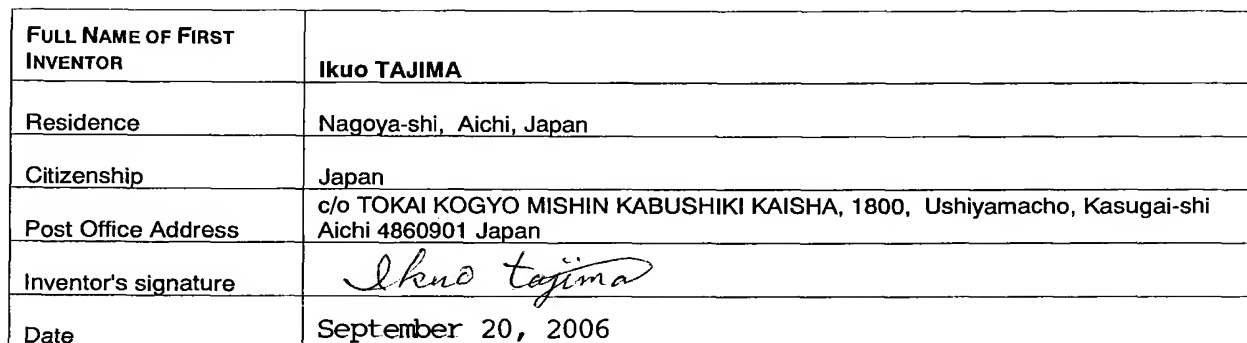 FULL NAME OF FIRST
INVENTOR
Ikuo TAJIMA
Residence
Nagoya-shi, Aichi, Japan
Citizenship
Japan
Post Office Address
c/o TOKAI KOGYO MISHIN KABUSHIKI KAISHA, 1800, Ushiyamacho, Kasugai-shi
Aichi 4860901 Japan
Inventor's signature
Ikuo tajima
Date
September 20, 2006